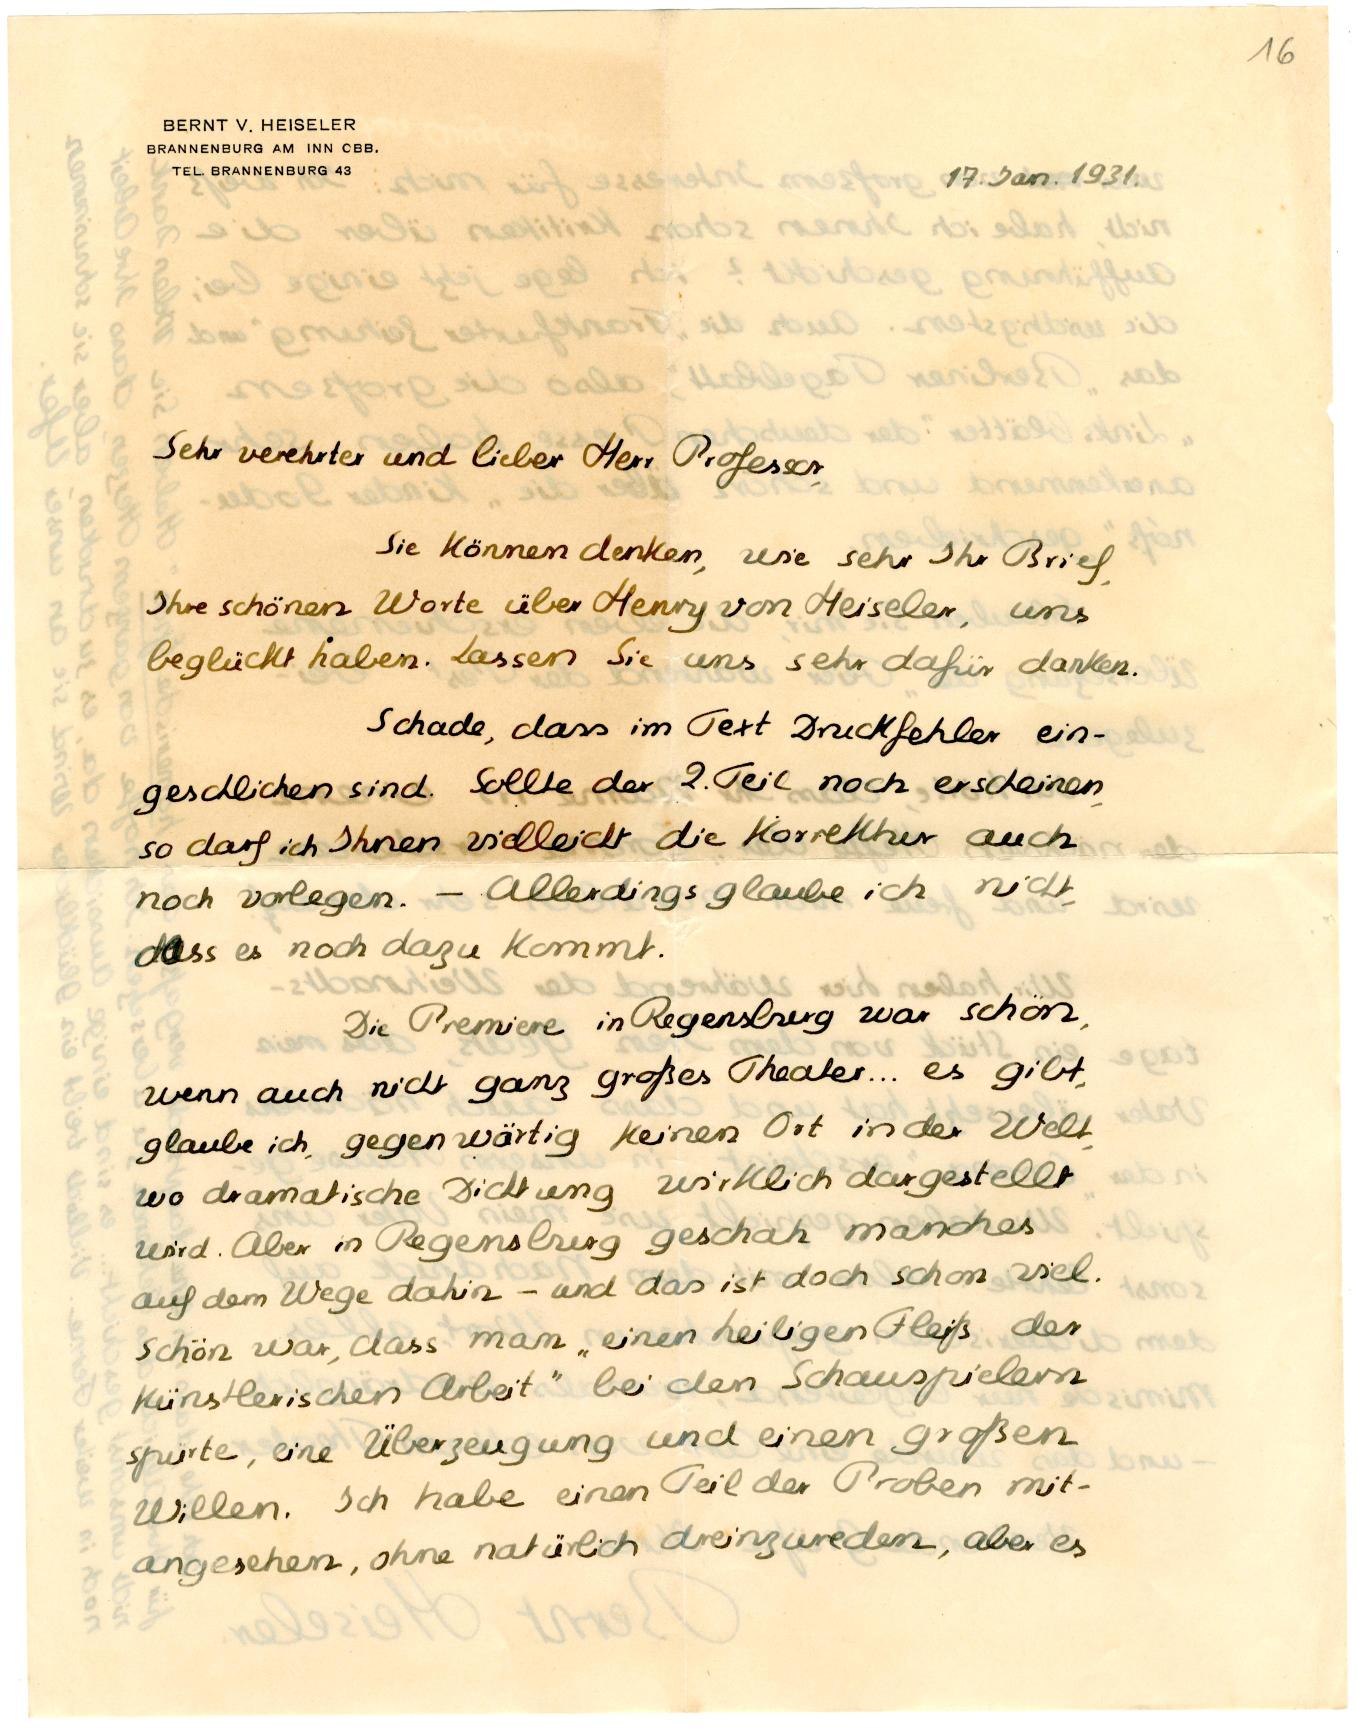 16
BERNT V. HEISELER
BRANNENBURG AM INN OBB.
TEL. BRANNENBURG 43
17. Jan. 1931.
Sehr verehrter und lieber Herr Professor,
Sie können denken, wie sehr Ihr Brief,
Ihre schönen Worte über Henry von Heiseler, uns
beglückt haben. Lassen Sie uns sehr dafür danken.
Schade, dass im Text Druckfehler ein-
geschlichen sind. Sollte der 2. Teil noch erscheinen,
so darf ich Ihnen vielleicht die Korrektur auch
noch vorlegen. – Allerdings glaube ich nicht,
dass es noch dazu kommt.
Die Premiere in Regensburg war schön,
wenn auch nicht ganz großes Theater... es gibt,
glaube ich, gegenwärtig keinen Ort in der Welt,
wo dramatische Dichtung wirklich dargestellt
wird. Aber in Regensburg geschah manches
auf dem Wege dahin – und das ist doch schon viel.
Schön war, dass man „einen heiligen Fleiß der
künstlerischen Arbeit" bei den Schauspielern
spürte, eine Überzeugung und einen großen
Willen. Ich habe einen Teil der Proben mit-
angesehen, ohne natürlich dreinzureden, aber es